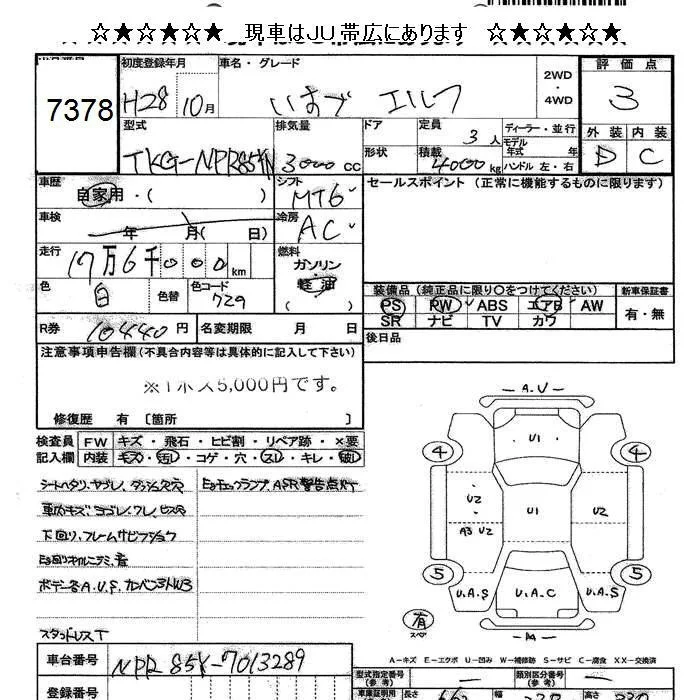 ☆★☆★☆★ 現車はJU帯広にあります ☆★☆★☆★
7378
初度登録年月
H28 10月
車名・グレード
いすゞ エルフ
2WD
・
4WD
評価点
3
外装 内装
D C
型式
TKG-NPR85YN
排気量
3000cc
ドア
形状
定員
3人
積載
4000kg
ディーラー・並行
モデル年式 年
ハンドル 左・右
車歴
自家用・( )
シフト
MT6
セールスポイント (正常に機能するものに限ります)
車検
年 月( 日)
冷房
AC
走行
17万6千000km
燃料
ガソリン
軽油
色
白
色替
色コード
729
装備品 (純正品に限り○をつけてください)
PS PW ABS エアB AW
SR ナビ TV カワ
新車保証書
有・無
R券
10440円
名変期限 月 日
後日品
注意事項申告欄(不具合内容等は具体的に記入して下さい)
※1ホ入5,000円です。
修復歴 有 〔箇所 〕
検査員
記入欄
FW キズ・飛石・ヒビ割・リペア跡・×要
内装 キズ・汚レ・コゲ・穴・スレ・キレ・破レ
シートヘタリ、ヤブレ、ダッシュ欠穴
下回り、フレームサビフショウ
スタッドレスT
A.U
U1
4 4
U2 U1 U2
A3 U2
5 5
U.A.S U.A.C U.A.S
有
スペア
A-キズ E-エクボ U-凹み W-補修跡 S-サビ C-腐食 XX-交換済
車台番号
NPR85Y-7013289
登録番号
型式指定番号
(参考)
類別区分番号
(参考)
長さ
幅
高さ